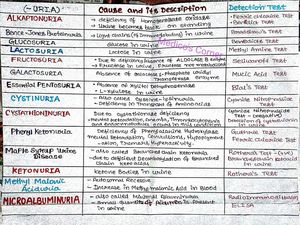 (-URIA)
Cause and Its Description
Detection Test
ALKAPTONURIA
- deficiency of Homogentisate oxidase
- Urine becomes dark on standing
- Ferric Chloride Test
- Benedict's Test
Bence-Jones Proteinuria
- Light chains of Immunoglobulin in urine
Bradshaw's Test
GLUCOSURIA
Glucose in urine
Benedict's Test
Medico's Corner
LACTOSURIA
Lactose in urine
Methyl Amine Test
FRUCTOSURIA
- Due to deficiency/Absence of ALDOLASE B enzyme
- Fructose in urine
Seliwanoff Test
GALACTOSURIA
Absence of Galactose 1-Phosphate Uridyl Transferase enzyme
Mucic Acid Test
Essential PENTOSURIA
- Absence of Xylitol Dehydrogenase
- L-Xylulose in urine
Bial's Test
CYSTINURIA
- Also called Cystine-Lysinuria
- Deficiency in Transport of Aminoacids
Cyanide Nitroprusside Test
CYSTATHIONINURIA
- Due to cystathionase deficiency
- Mental retardation, Anemia, Thrombocytopenia
Cyanide Nitroprusside Test
Phenyl Ketonuria
Deficiency of Phenylalanine Hydroxylase
Mental Retardation, Convulsions, Hypopigmentation, Tremors, Hyperactivity.
Guthrie Test
Ferric Chloride Test
Maple Syrup Urine Disease
- Also called Branched chain Ketonuria
- due to deficient Decarboxylation of Branched chain Keto acids
Rothera's Test
KETONURIA
Ketone Bodies in Urine
Rothera's Test
Methyl Malonic Aciduria
- Autosomal Recessive
- Increase in Methyl Malonic Acid in Blood
MICROALBUMINURIA
- Also called Minimal Albuminuria
- Small quantity of Albumin present in urine
Radioimmunoassay
ELISA